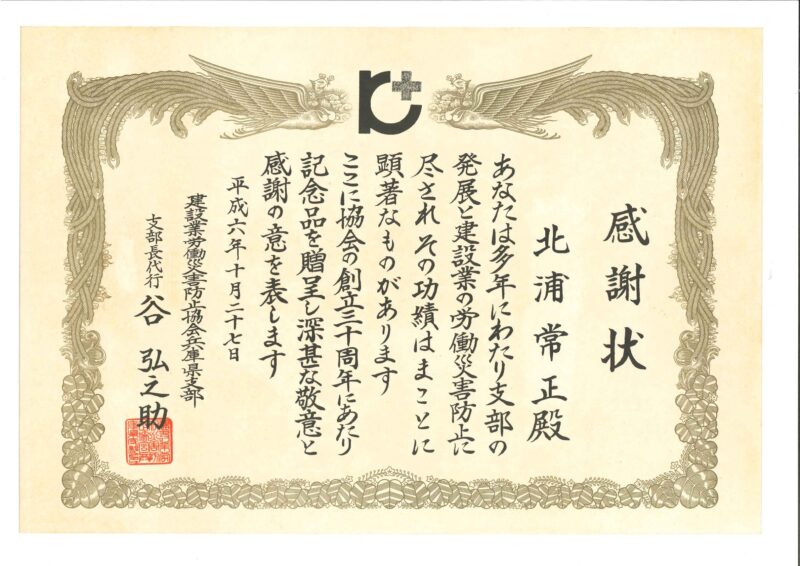 感謝状
北浦常正殿
あなたは多年にわたり支部の
発展と建設業の労働災害防止に
尽されその功績はまことに
顕著なものがあります
ここに協会の創立三十周年にあたり
記念品を贈呈し深甚な敬意と
感謝の意を表します
平成六年十月二十七日
建設業労働災害防止協会兵庫県支部
支部長代行 谷弘之助